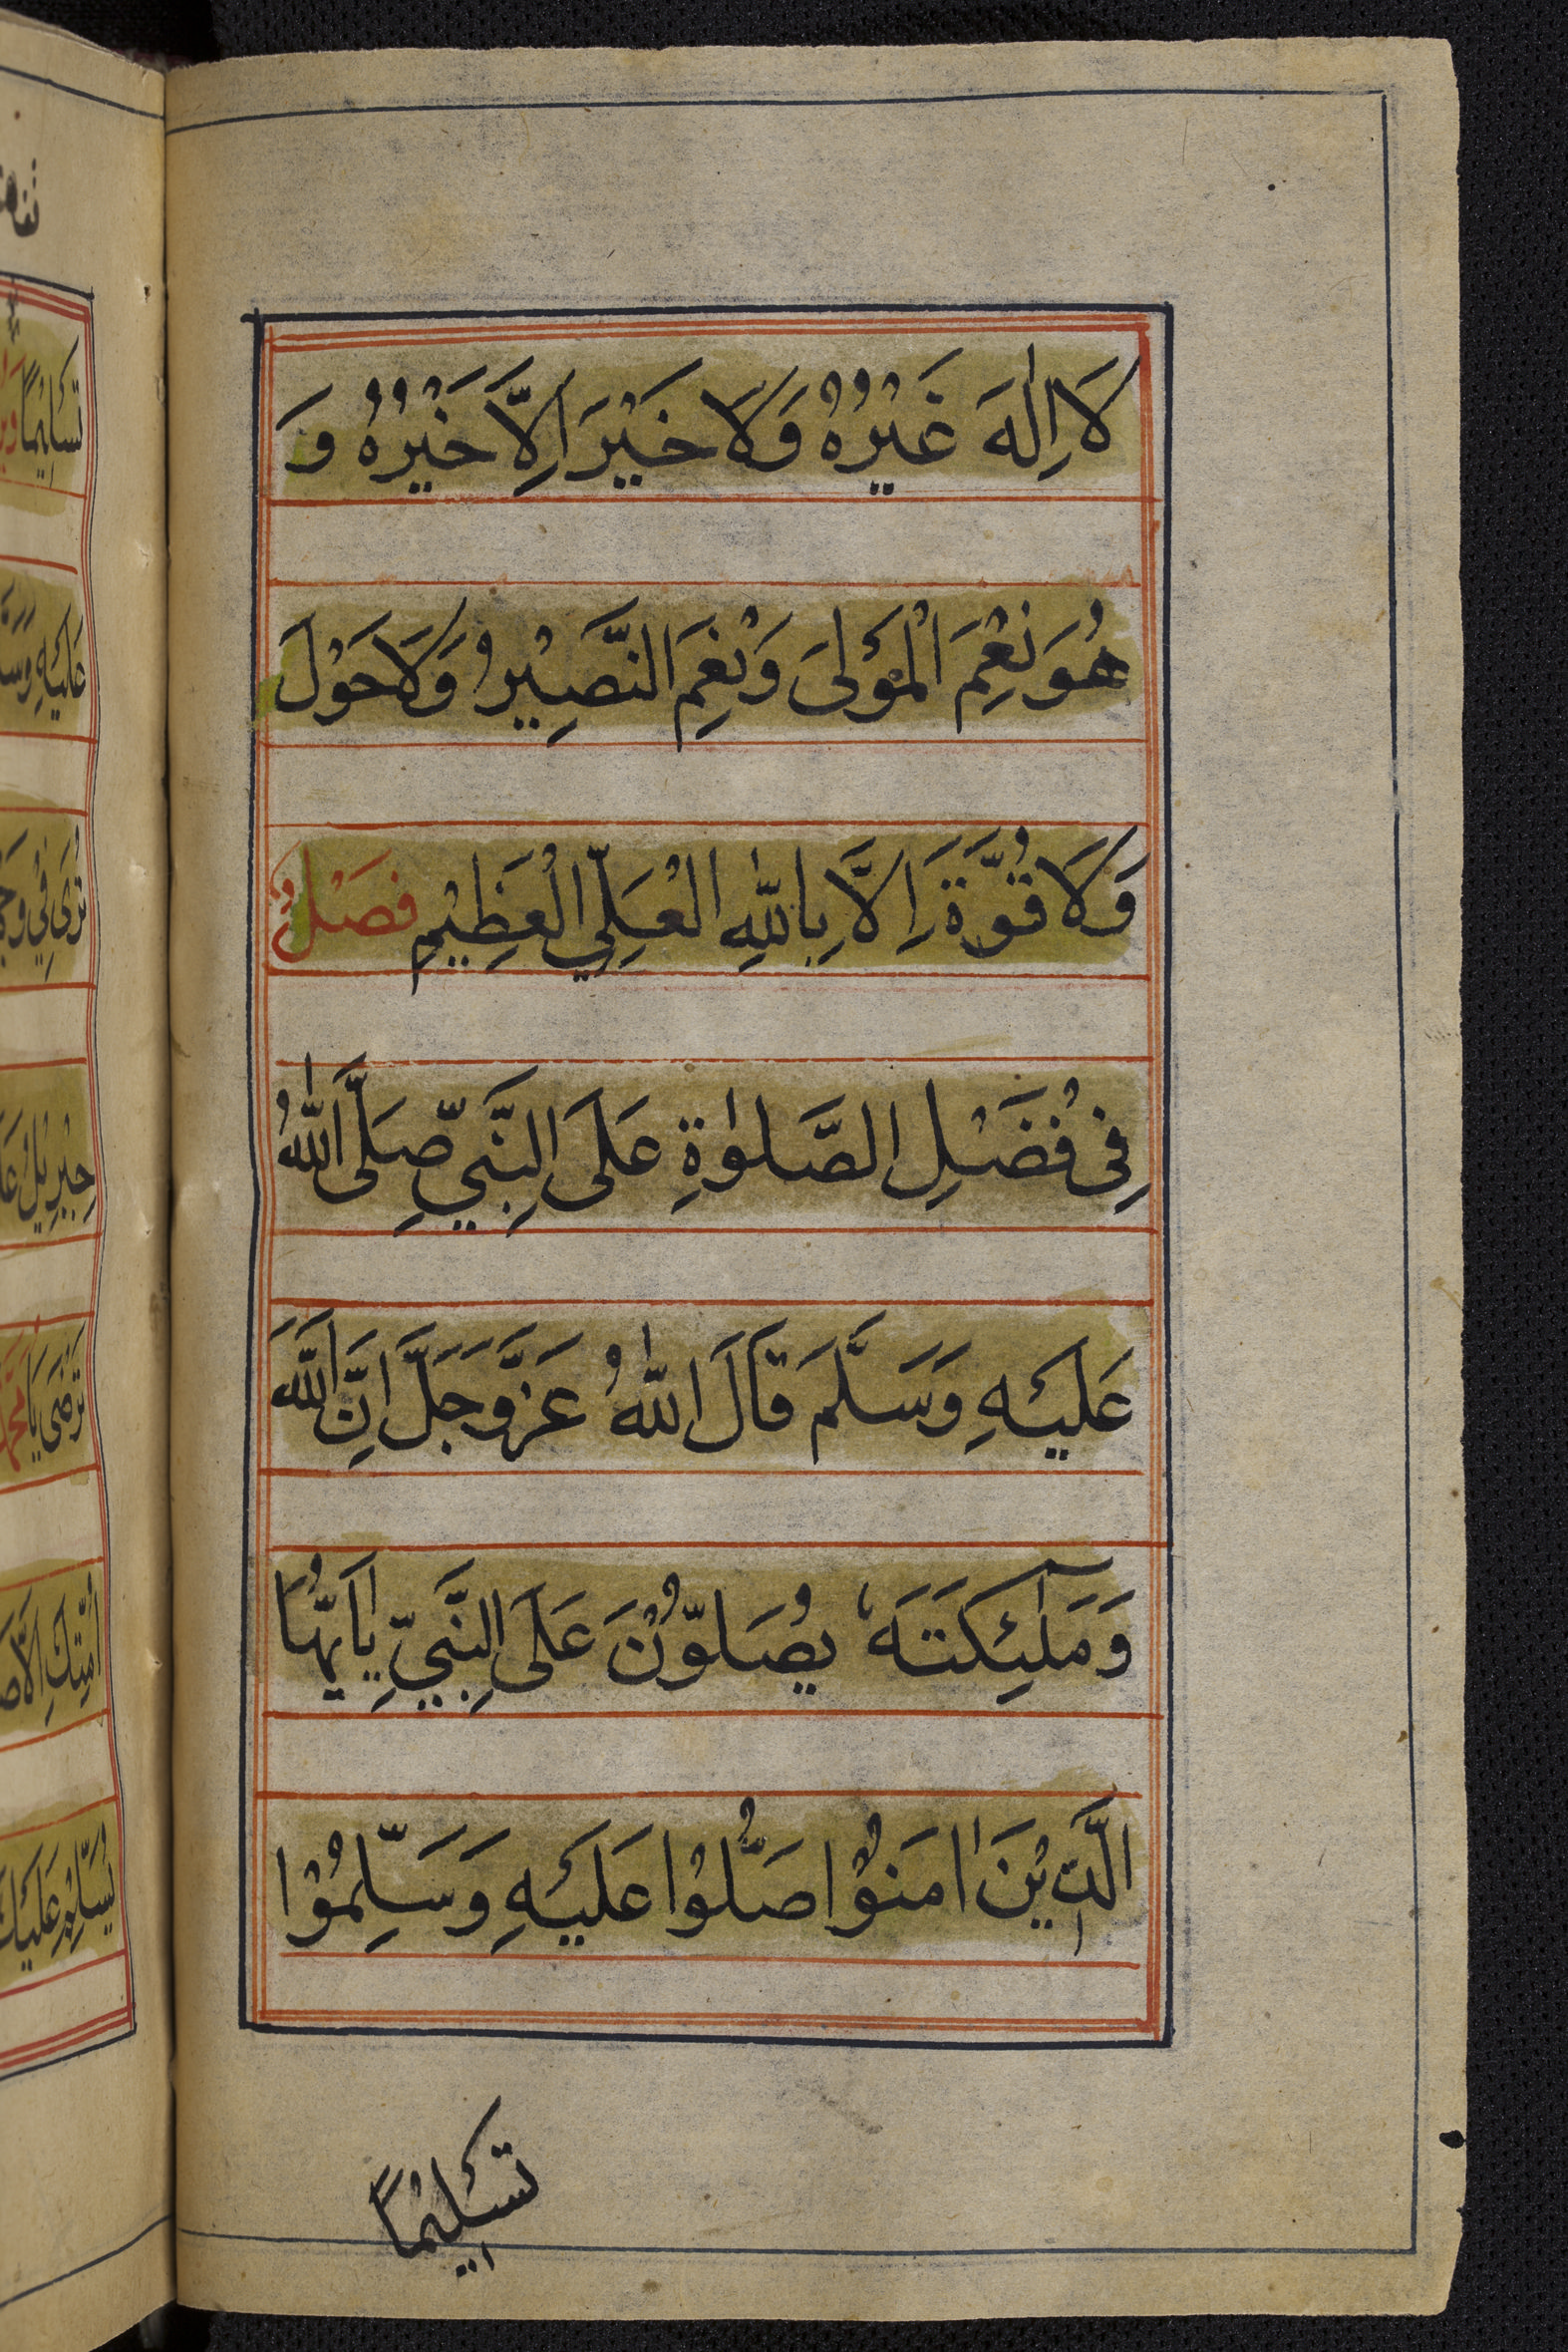 لَا اِلٰهَ غَيْرُهُ وَلَا خَيْرَ اِلَّا خَيْرُهُ وَ
هُوَ نِعْمَ الْمَوْلَى وَنِعْمَ النَّصِيْرُ وَلَا حَوْلَ
وَلَا قُوَّةَ اِلَّا بِاللّٰهِ الْعَلِيِّ الْعَظِيْمِ فَصْلٌ
فِى فَضْلِ الصَّلٰوةِ عَلَى النَّبِيِّ صَلَّى اللّٰهُ
عَلَيْهِ وَسَلَّمَ قَالَ اللّٰهُ عَزَّ وَجَلَّ اِنَّ اللّٰهَ
وَمَلٰٓئِكَتَهٗ يُصَلُّوْنَ عَلَى النَّبِيِّ يٰاَيُّهَا
الَّذِيْنَ اٰمَنُوْا صَلُّوْا عَلَيْهِ وَسَلِّمُوْا
تَسْلِيْمًا
تَسْلِيْمًا
عَلَيْهِ
تُرٰى فِيْ
جِبْرِيْلُ
تَرْضٰى يَا
اُمَّتِكَ
عَلَيْكَ